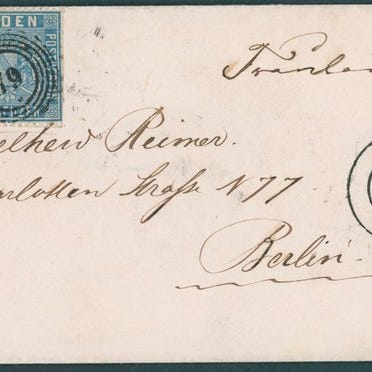 DEN
POST
19
Franko
elhem Reimer.
arlotten Straße N 77
Berlin